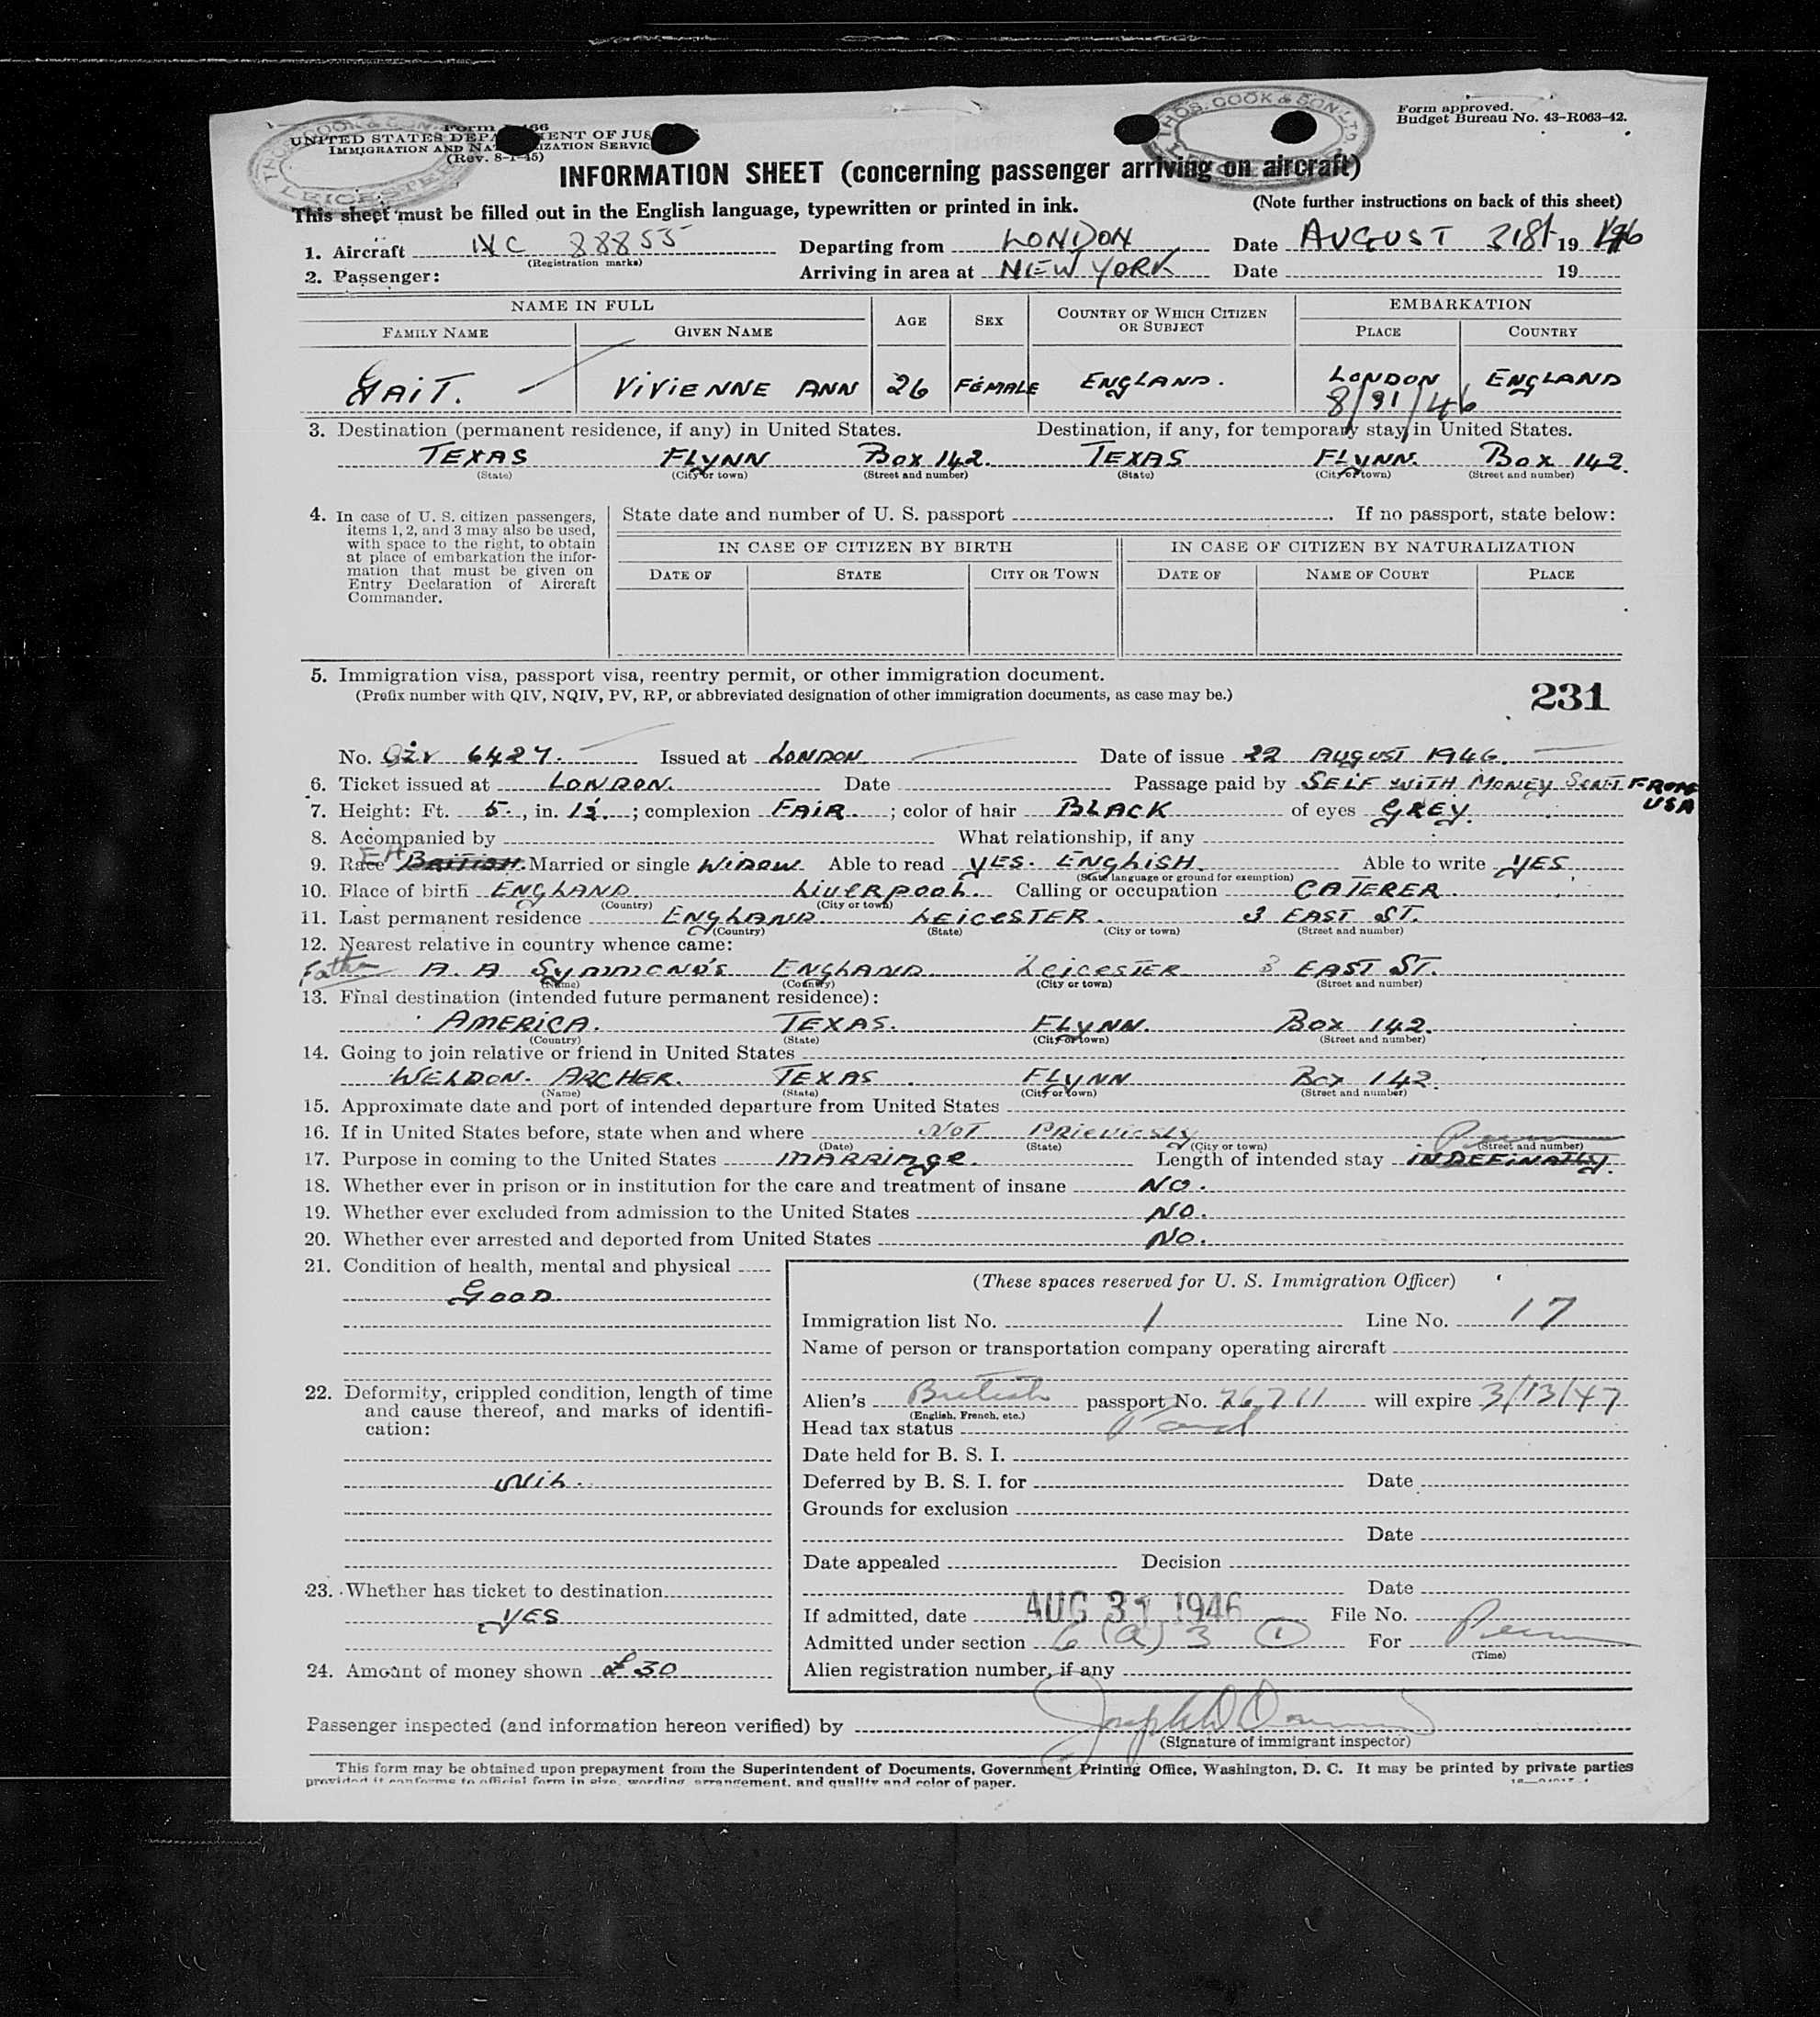 THOS. COOK & SON LTD. LEICESTER
THOS. COOK & SON LTD.
Form approved.
Budget Bureau No. 43-R063-42.
UNITED STATES DEPA MENT OF JUS
IMMIGRATION AND NA IZATION SERVIC
(Rev. 8-1-45)
INFORMATION SHEET (concerning passenger arriving on aircraft)
This sheet must be filled out in the English language, typewritten or printed in ink. (Note further instructions on back of this sheet)
1. Aircraft NC 88855 Departing from LONDON Date AUGUST 31st 19 46
(Registration marks)
2. Passenger: Arriving in area at NEW YORK Date 19
NAME IN FULL AGE SEX COUNTRY OF WHICH CITIZEN OR SUBJECT EMBARKATION
FAMILY NAME GIVEN NAME PLACE COUNTRY
GAiT. ViViENNE ANN 26 FEMALE ENGLAND. LONDON ENGLAND
8/31/46
3. Destination (permanent residence, if any) in United States. Destination, if any, for temporary stay, in United States.
TEXAS FLYNN Box 142. TEXAS FLYNN. Box 142.
(State) (City or town) (Street and number) (State) (City or town) (Street and number)
4. In case of U. S. citizen passengers,
items 1, 2, and 3 may also be used,
with space to the right, to obtain
at place of embarkation the infor-
mation that must be given on
Entry Declaration of Aircraft
Commander.
State date and number of U. S. passport . If no passport, state below:
IN CASE OF CITIZEN BY BIRTH IN CASE OF CITIZEN BY NATURALIZATION
DATE OF STATE CITY OR TOWN DATE OF NAME OF COURT PLACE
5. Immigration visa, passport visa, reentry permit, or other immigration document.
(Prefix number with QIV, NQIV, PV, RP, or abbreviated designation of other immigration documents, as case may be.)
231
No. Qiv 6427. Issued at LONDON Date of issue 22 AUGUST 1946.
6. Ticket issued at LONDON. Date Passage paid by SELF WITH MONEY SENT FROM USA
7. Height: Ft. 5., in. 1½.; complexion FAIR.; color of hair BLACK of eyes GREY.
8. Accompanied by What relationship, if any
9. Race BRITISH. Married or single WIDOW Able to read YES. ENGLISH. Able to write YES
(State language or ground for exemption)
10. Place of birth ENGLAND LiVERPOOL. Calling or occupation CATERER
(Country) (City or town)
11. Last permanent residence ENGLAND. LEICESTER. 3 EAST ST.
(Country) (State) (City or town) (Street and number)
12. Nearest relative in country whence came:
Father A. A SYMMONDS ENGLAND LEICESTER 3 EAST ST.
(Name) (Country) (City or town) (Street and number)
13. Final destination (intended future permanent residence):
AMERICA. TEXAS. FLYNN. Box 142.
(Country) (State) (City or town) (Street and number)
14. Going to join relative or friend in United States
WELDON. ARCHER. TEXAS FLYNN Box 142.
(Name) (State) (City or town) (Street and number)
15. Approximate date and port of intended departure from United States
16. If in United States before, state when and where NOT PRIEVIOSLY
(Date) (State) (City or town) (Street and number)
17. Purpose in coming to the United States MARRIAGE. Length of intended stay INDEFINATLY.
18. Whether ever in prison or in institution for the care and treatment of insane NO.
19. Whether ever excluded from admission to the United States NO.
20. Whether ever arrested and deported from United States NO.
21. Condition of health, mental and physical
GOOD
22. Deformity, crippled condition, length of time
and cause thereof, and marks of identifi-
cation:
NiL.
23. Whether has ticket to destination
YES
24. Amount of money shown £30
(These spaces reserved for U. S. Immigration Officer)
Immigration list No. 1 Line No. 17
Name of person or transportation company operating aircraft
Alien's British passport No. 76711 will expire 3/13/47
(English, French, etc.)
Head tax status Paid
Date held for B. S. I.
Deferred by B. S. I. for Date
Grounds for exclusion
Date
Date appealed Decision
Date
If admitted, date AUG 31 1946 File No.
Admitted under section 6 (a) 3 1 For Perm
(Time)
Alien registration number, if any
Passenger inspected (and information hereon verified) by
(Signature of immigrant inspector)
This form may be obtained upon prepayment from the Superintendent of Documents, Government Printing Office, Washington, D. C. It may be printed by private parties
provided it conforms to official form in size, wording, arrangement, and quality and color of paper.